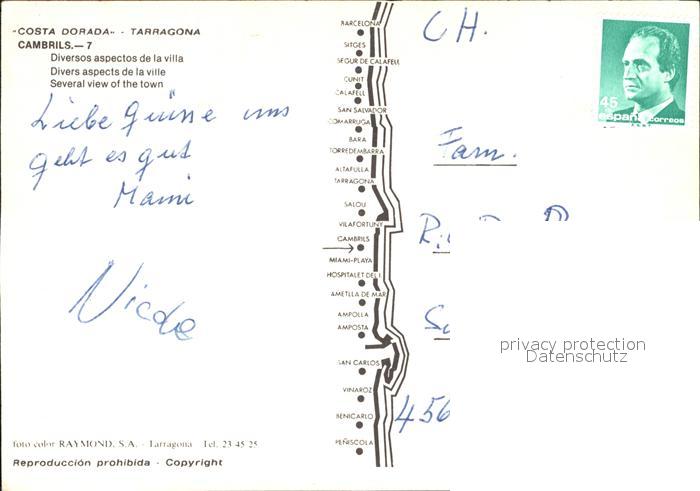 "COSTA DORADA" - TARRAGONA
CAMBRILS.— 7
Diversos aspectos de la villa
Divers aspects de la ville
Several view of the town
Liebe Grüsse uns
geht es gut
Mami
Nicole
foto color RAYMOND, S.A. - Tarragona Tel. 23 45 25
Reproducción prohibida - Copyright
BARCELONA
SITGES
SEGUR DE CALAFELL
CUNIT
CALAFELL
SAN SALVADOR
COMARRUGA
BARA
TORREDEMBARRA
ALTAFULLA
TARRAGONA
SALOU
VILAFORTUNY
CAMBRILS
MIAMI-PLAYA
HOSPITALET DEL I.
AMETLLA DE MAR
AMPOLLA
AMPOSTA
SAN CARLOS
VINAROZ
BENICARLO
PEÑISCOLA
CH.
45
españa correos
Fam.
456
privacy protection
Datenschutz